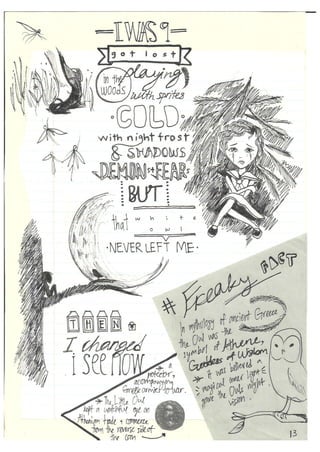 I WAS 9
got lost
in the
woods
playing
with sprites
COLD
with night frost
& SHADOWS
DEMON FEAR
BUT
that white
owl
NEVER LEFT ME.
THEN
I changed
i see NOW
# Freaky FACT
In mythology of ancient Greece
the Owl was the
symbol of Athene,
Goddess of Wisdom
it was believed a
magical inner light
gave the Owls night
vision.
a
protector,
accompanying
Greek armies to war.
The Little Owl
kept a watchful eye on
Athenian trade & commerce
from the reverse side of
the coin
13